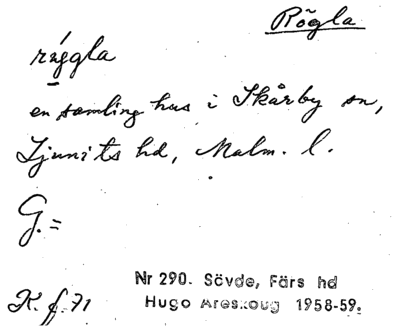 Rögla
rǽggla
en samling hus i Skårby sn,
Ljunits hd, Malm. l.
G.=
K. f. 71
Nr 290. Sövde, Färs hd
Hugo Areskoug 1958-59.